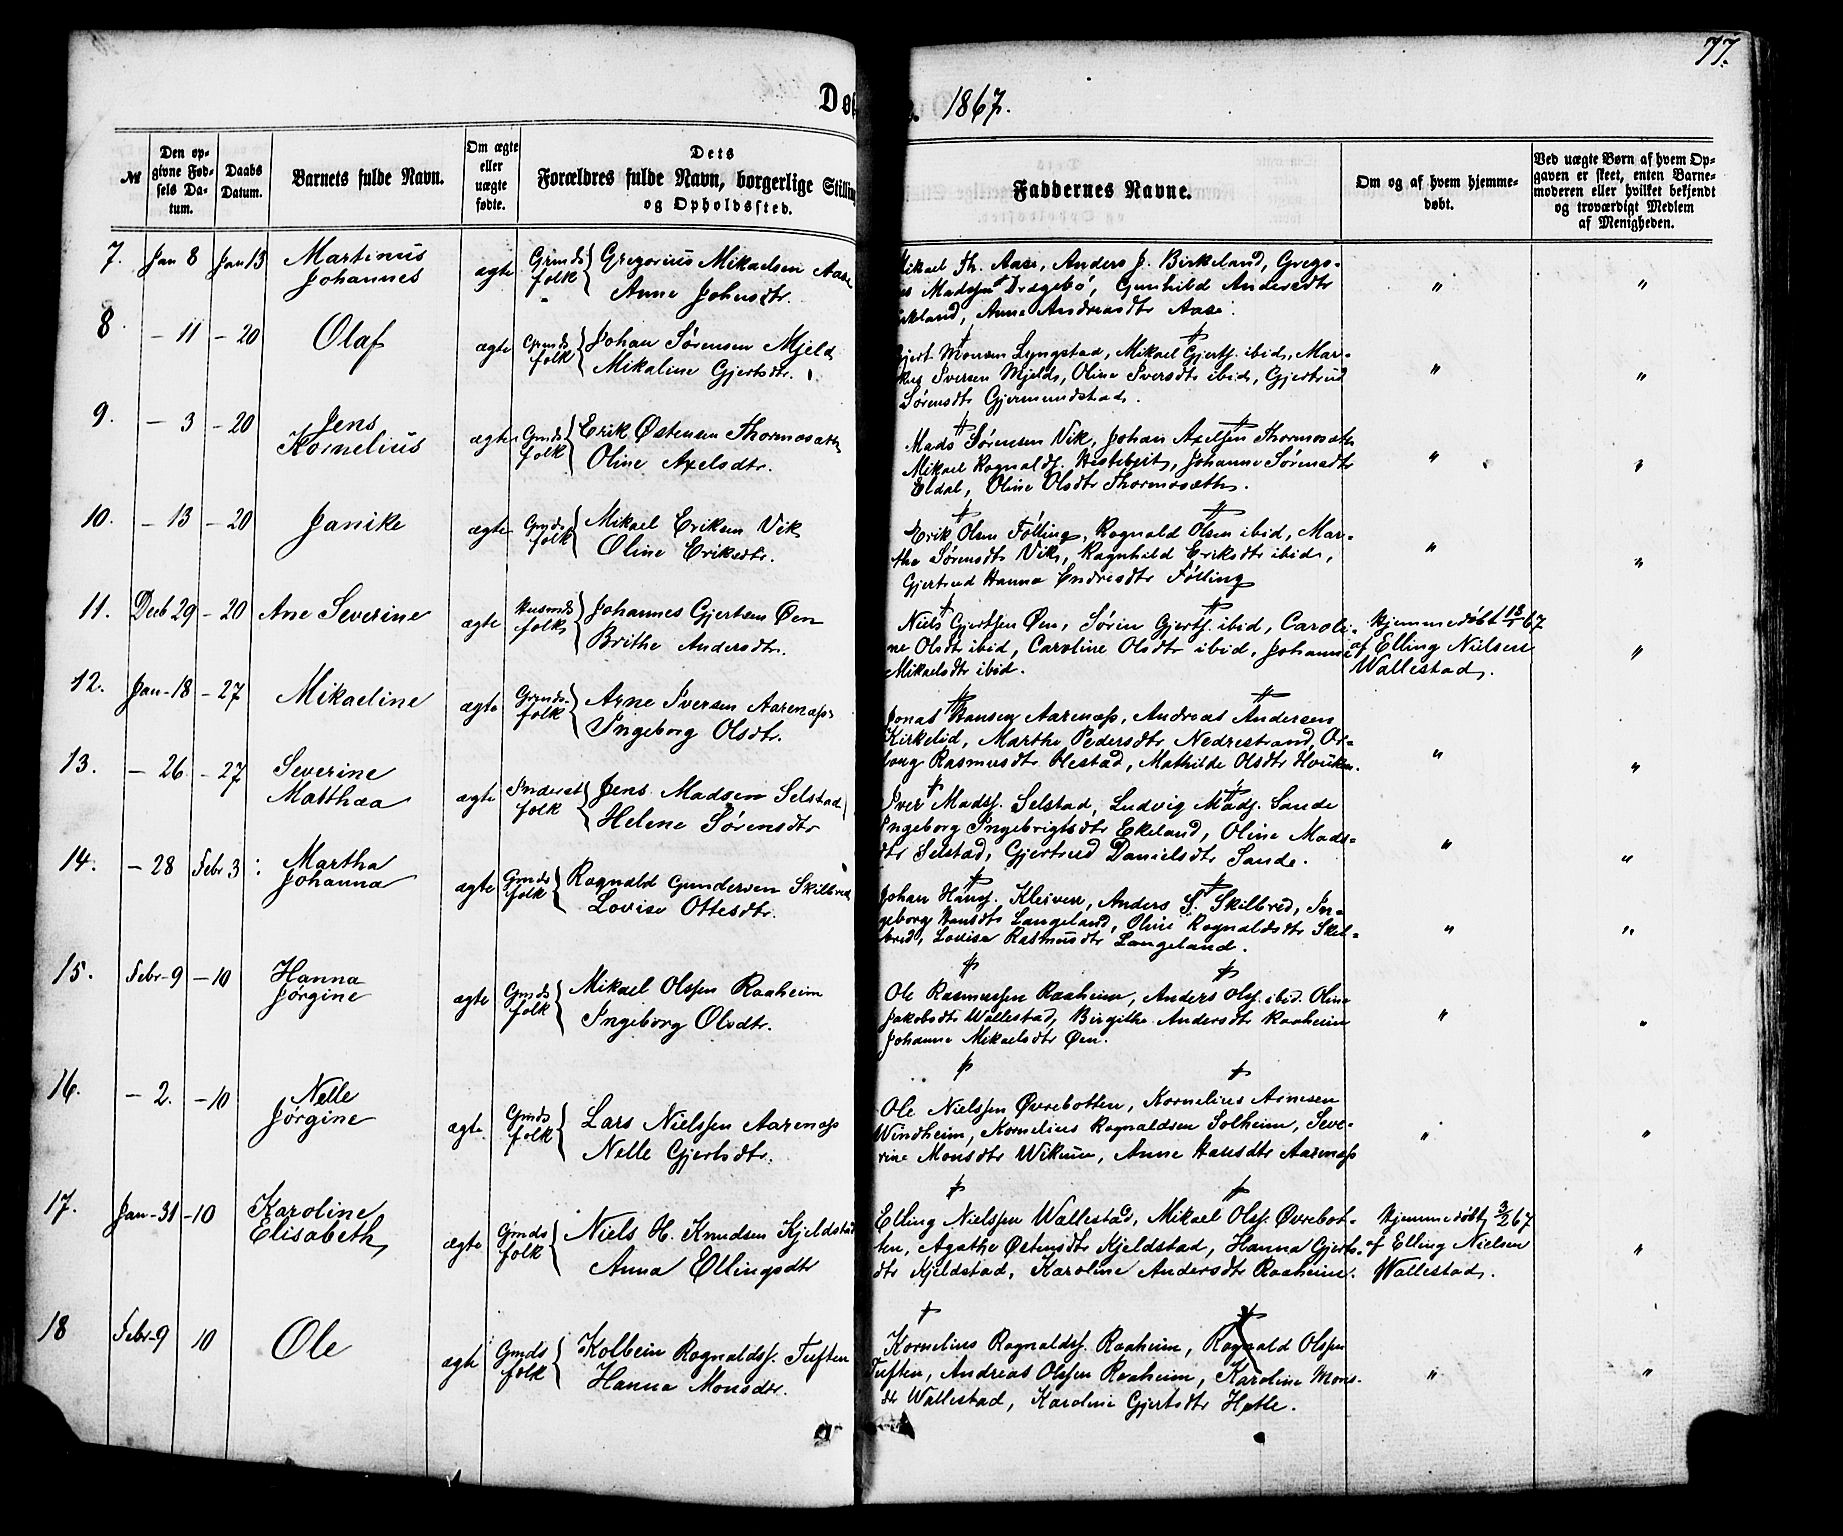 77.
Dø 1867.
№
Den op-
givne Fød-
sels Da-
tum.
Daabs
Datum.
Barnets fulde Navn.
Om ægte
eller
uægte
fødte.
Dets
Forældres fulde Navn, borgerlige Stilling
og Opholdssted.
Faddernes Navne.
Om og af hvem hjemme-
døbt.
Ved uægte Børn af hvem Op-
gaven er skeet, enten Barne-
moderen eller hvilket bekjendt
og troværdigt Medlem
af Menigheden.
7. Jan 8 Jan 13 Martinus
Johannes
ægte Grmds
folk { Gregorius Mikaelsen Aase
Anne Johnsdtr.
Mikael Th. Aase, Anders J. Birkeland, Grego-
Madssen Drægebø, Gunhild Andersdtr
Anne Andreasdtr Aase.
" "
8. – 11 – 20 Olaf
ægte Grmds
folk { Johan Sørensen Mjeld
Mikaline Gjertsdtr.
Gjert Monsen Lyngstad, Mikael Gjertss. ibid, Mar-
kus Iversen Mjeld, Oline Iversdtr ibid, Gjertrud
Sørensdtr Gjermundstad.
" "
9. – 3 – 20 Jens
Kornelius
ægte Grmds
folk { Erik Østensen Thormosæth
Oline Axelsdtr.
Mads Sørensen Vik, Johan Axelssen Thormosæth
Mikael Rognalds. Hestebeit, Johanne Sørensdtr
Eldal, Oline Olsdtr Thormosæth.
" "
10. – 13 – 20 Janike
ægte Grmds
folk { Mikael Eriksen Vik
Oline Eriksdtr.
Erik Olsen Følling, Rognald Olsen ibid, Mar-
tha Sørensdtr Vik, Ragnhild Eriksdtr ibid,
Gjertrud Hanna Endresdtr Følling
" "
11. Decb 29 – 20 Ane Severine
ægte Husmds
folk { Johannes Gjertsen Øen
Brithe Andersdtr.
Niels Gjertssen Øen, Søren Gjertss. ibid, Caroli-
ne Olsdtr ibid, Caroline Olsdtr ibid, Johanne
Mikaelsdtr ibid.
Hjemmedøbt 13/1 67
af Elling Nielsen
Wallestad.
"
12. Jan – 18 – 27 Mikaeline
ægte Grmds
folk { Arne Iversen Aarenæs
Ingeborg Olsdtr.
Jonas Hansen Aarenæs, Andreas Andersen
Kirkelid, Marthe Pedersdtr Nedrestrand, Or-
borg Rasmusdtr Olestad, Mathilde Olsdtr
" "
13. – 26. – 27 Severine
Matthea
ægte Inderst
folk { Jens Madsen Selstad
Helene Sørensdtr
Iver Madss. Selstad, Ludvig Mads. Sande
Ingeborg Ingebrigtsdtr Ekeland, Oline Mads-
dtr Selstad, Gjertrud Danielsdtr Sande.
" "
14. – 28 Febr 3 Martha
Johanna
ægte Grmds
folk { Rognald Gundersen Skilbred
Lovise Ottesdtr.
Johan Hanss. Kleiven, Anders S. Skilbred, In-
geborg Hansdtr Langeland, Oline Rognaldsdtr Skil-
bred, Lovise Rasmusdtr Langeland.
" "
15. Febr – 9 – 10 Hanna
Jørgine
ægte Grmds
folk { Mikael Olssen Raaheim
Ingeborg Olsdtr.
Ole Rasmussen Raaheim, Anders Olss. ibid. Oline
Jakobsdtr Wallestad, Birgithe Andersdtr Raaheim
Johanne Mikaelsdtr Øen.
" "
16. – 2. – 10 Nelle
Jørgine
ægte Grmds
folk { Lars Nielssen Aarenæs
Nelle Gjertsdtr.
Ole Nielssen Øvrebotten, Kornelius Arnesen
Windheim, Kornelius Rognaldsen Solheim, Seve-
rine Monsdtr Wikum, Anne Hansdtr Aarenæs
" "
17. Jan – 31 – 10 Karoline
Elisabeth
ægte Grmds
folk { Niels H. Knudsen Kjeldstad
Anna Ellingsdtr
Elling Nielssen Wallestad, Mikael Olss. Øvrebot-
ten, Agathe Østensdtr Kjeldstad, Hanna Gjerts-
dtr Kjeldstad, Karoline Andersdtr Raaheim.
Hjemmedøbt 3/2 67
af Elling Nielsen
Wallestad.
"
18 Febr – 9 10 Ole
ægte Grmds
folk { Kolbein Rognaldss. Tuften
Hanna Monsdtr.
Kornelius Rognaldss. Raaheim, Rognald Olssen
Tuften, Andreas Olssen Raaheim, Karoline Mons-
dtr Wallestad, Karoline Gjertsdtr Hatle.
" "